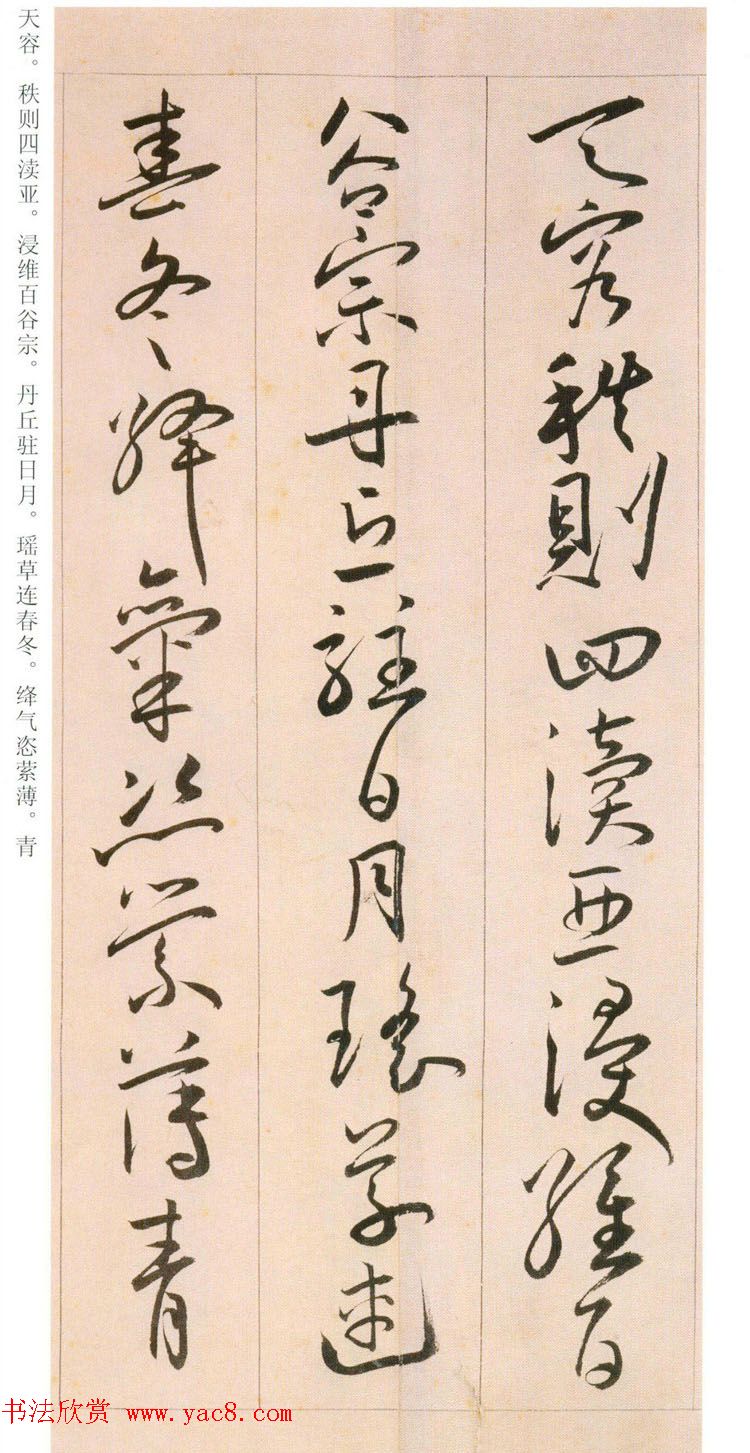 天容秩則四瀆亞浸維百
谷宗丹丘駐日月瑤草連
春冬絳氣恣縈薄青
天容。秩则四渎亚。浸维百谷宗。丹丘驻日月。瑶草连春冬。绛气恣萦薄。青
书法欣赏 www.yac8.com